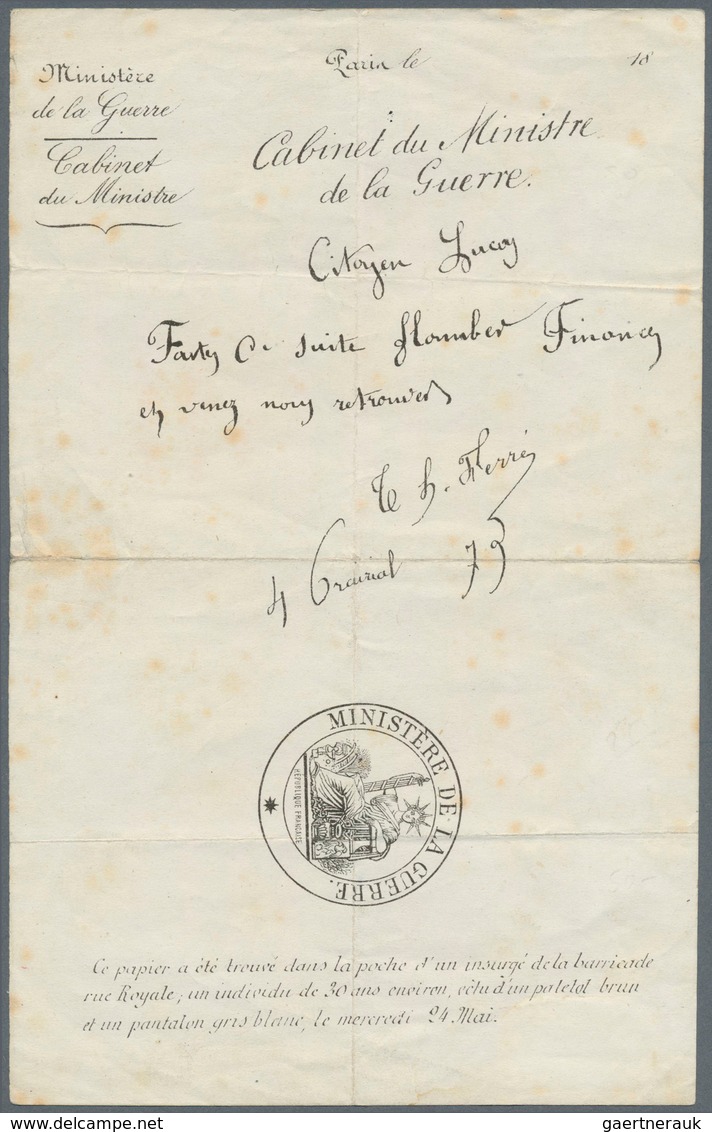 Ministère
de la Guerre
Cabinet
du Ministre
Paris le 18
Cabinet du Ministre
de la Guerre.
Citoyen Lucas
Faites de suite flamber Finances
et venez nous retrouver
Th. Ferré
4 Prairial 79
MINISTÈRE DE LA GUERRE.
RÉPUBLIQUE FRANÇAISE
Ce papier a été trouvé dans la poche d'un insurgé de la barricade
rue Royale; un individu de 30 ans environ, vêtu d'un paletot brun
et un pantalon gris bleue, le mercredi 24 Mai.
gaertnerauk
delcampe.net
gaertnerauk